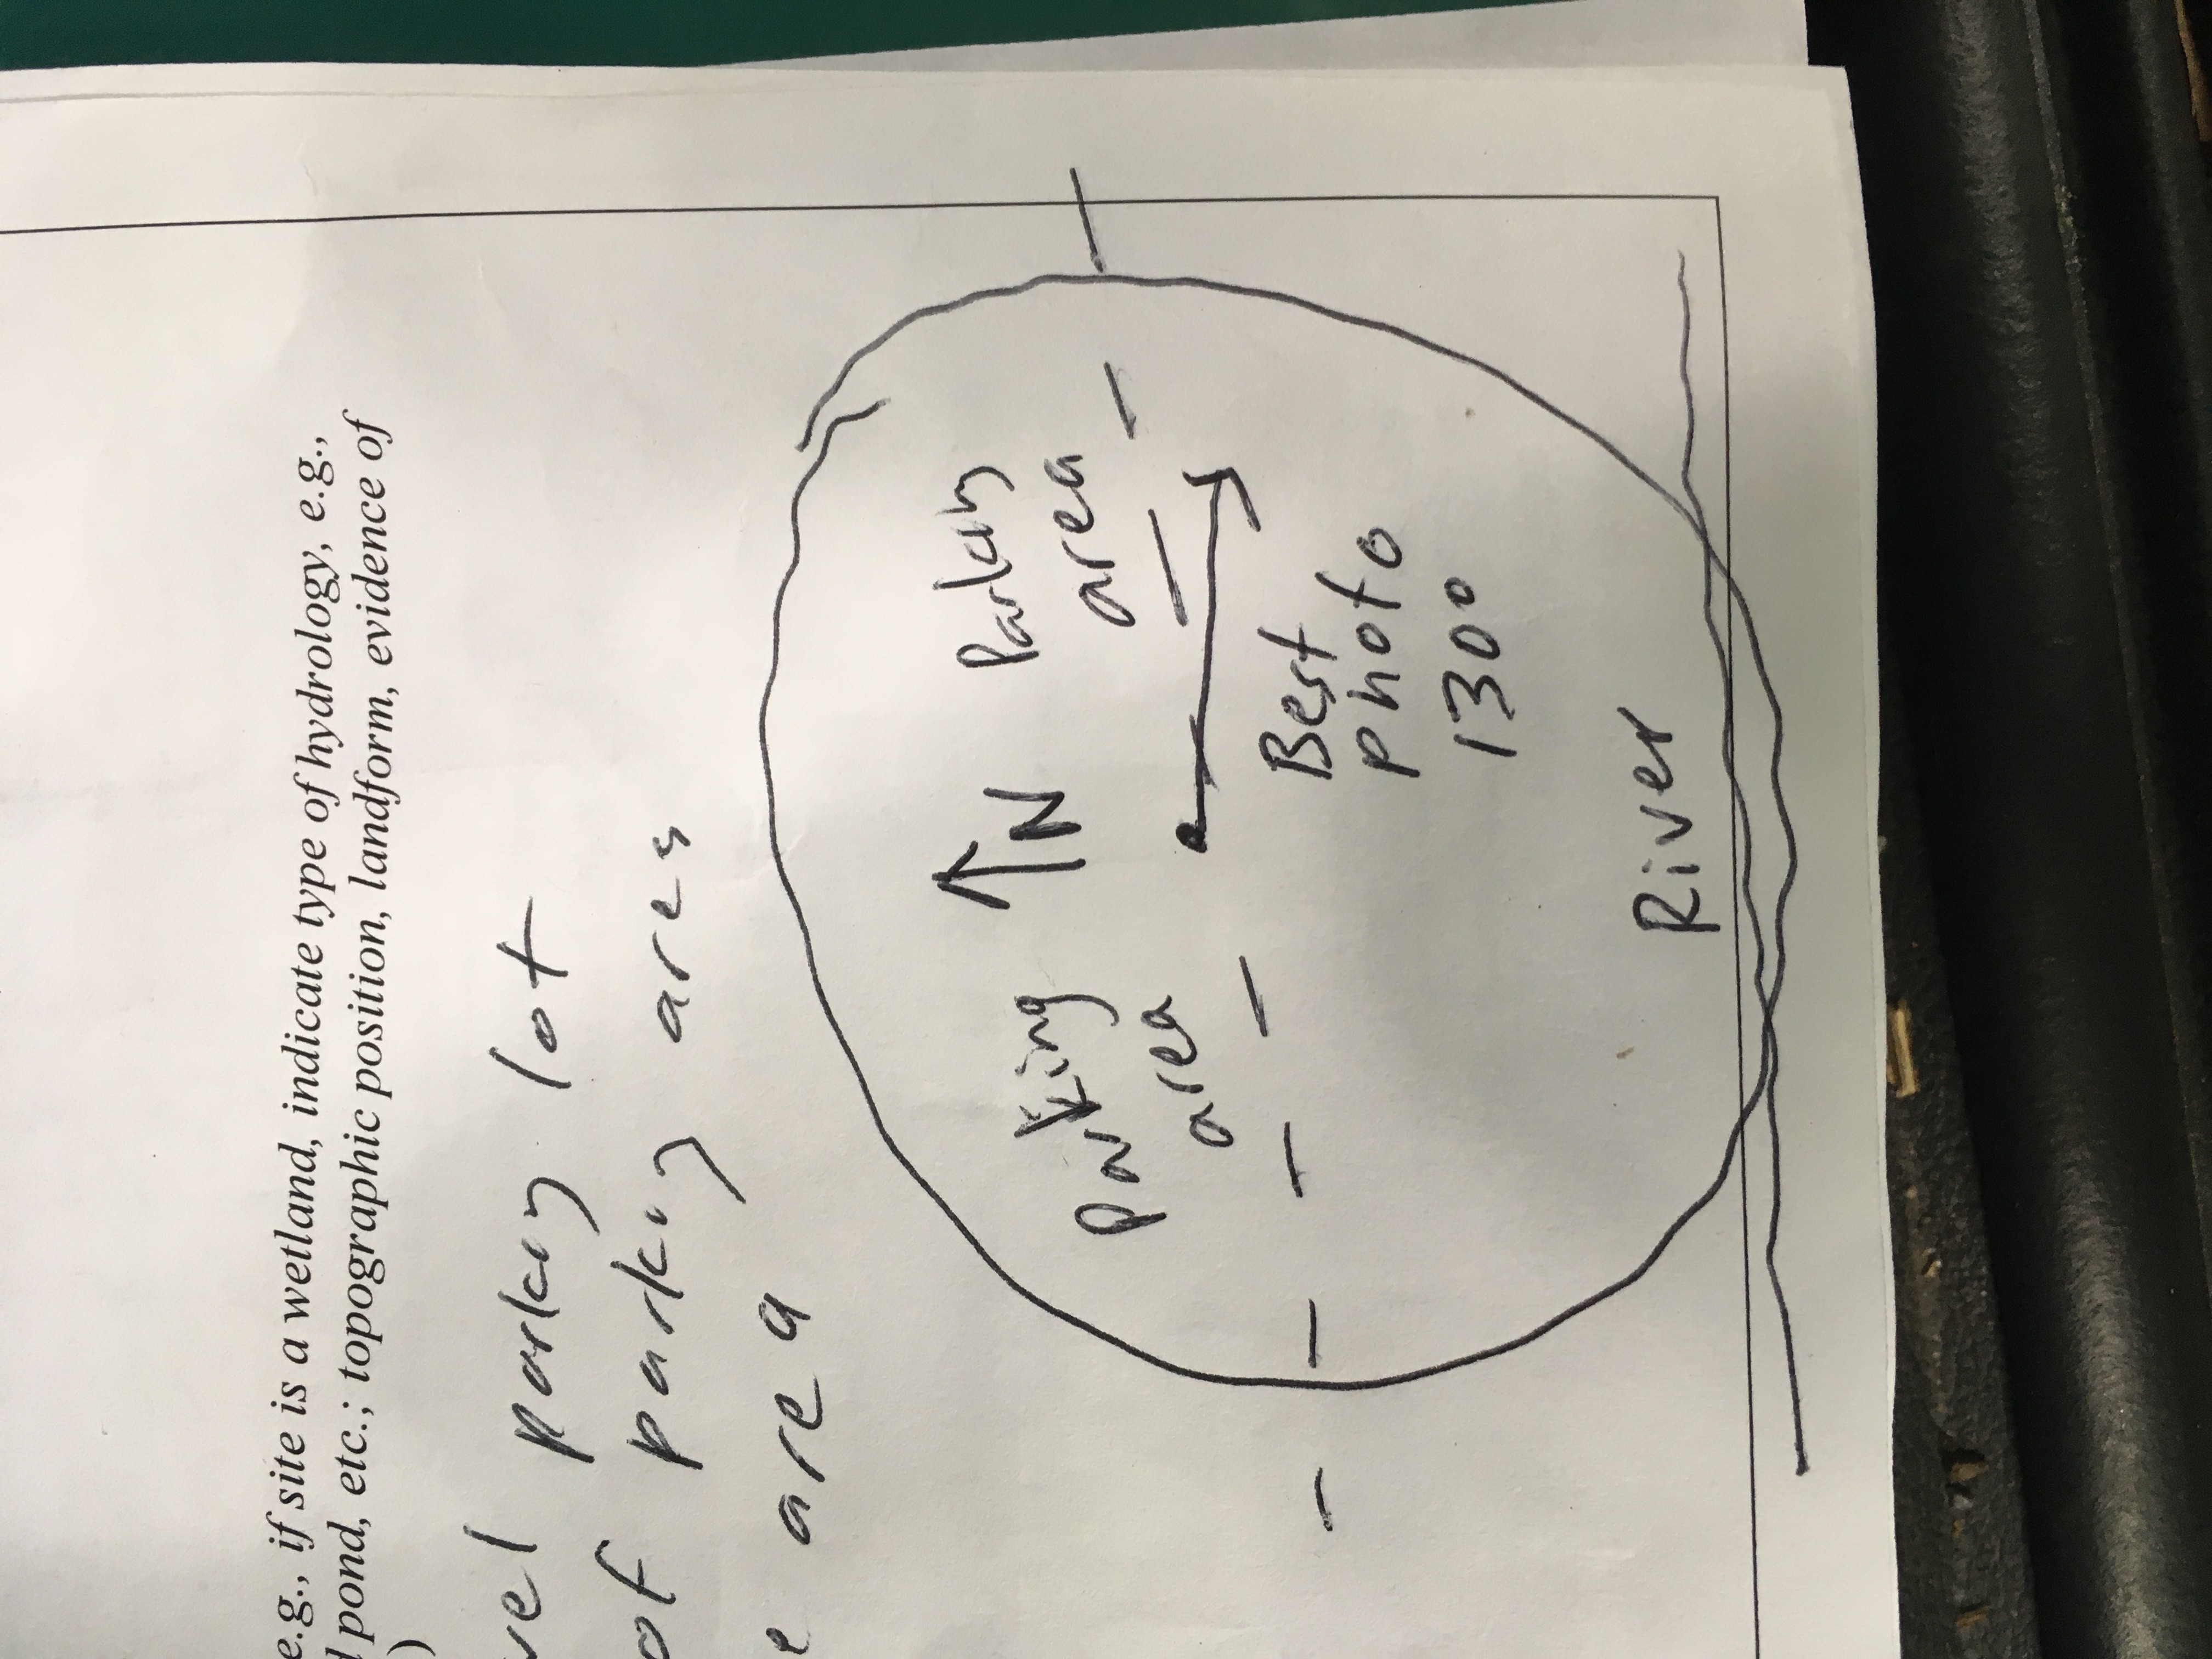 e.g., if site is a wetland, indicate type of hydrology, e.g.,
pond, etc.; topographic position, landform, evidence of
)
vel parking lot
of parking area
e area
Parking
area
↑N
Parking
area
Best
photo
1300
River